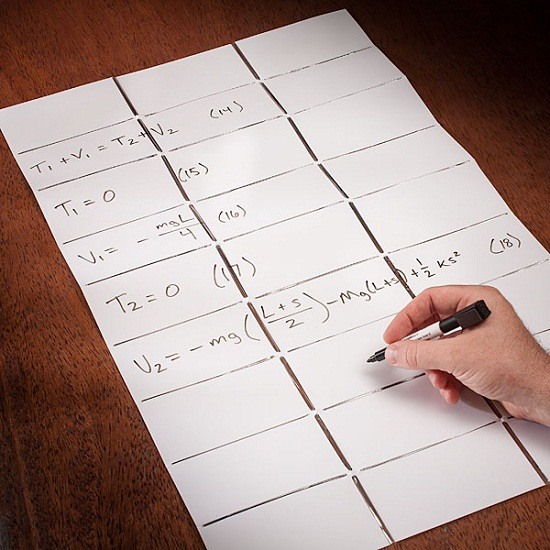 T₁ + V₁ = T₂ + V₂ (14)
T₁ = 0 (15)
V₁ = - mgL/4 (16)
T₂ = 0 (17)
V₂ = - mg((L+s)/2) - Mg(L+s) + 1/2 ks² (18)